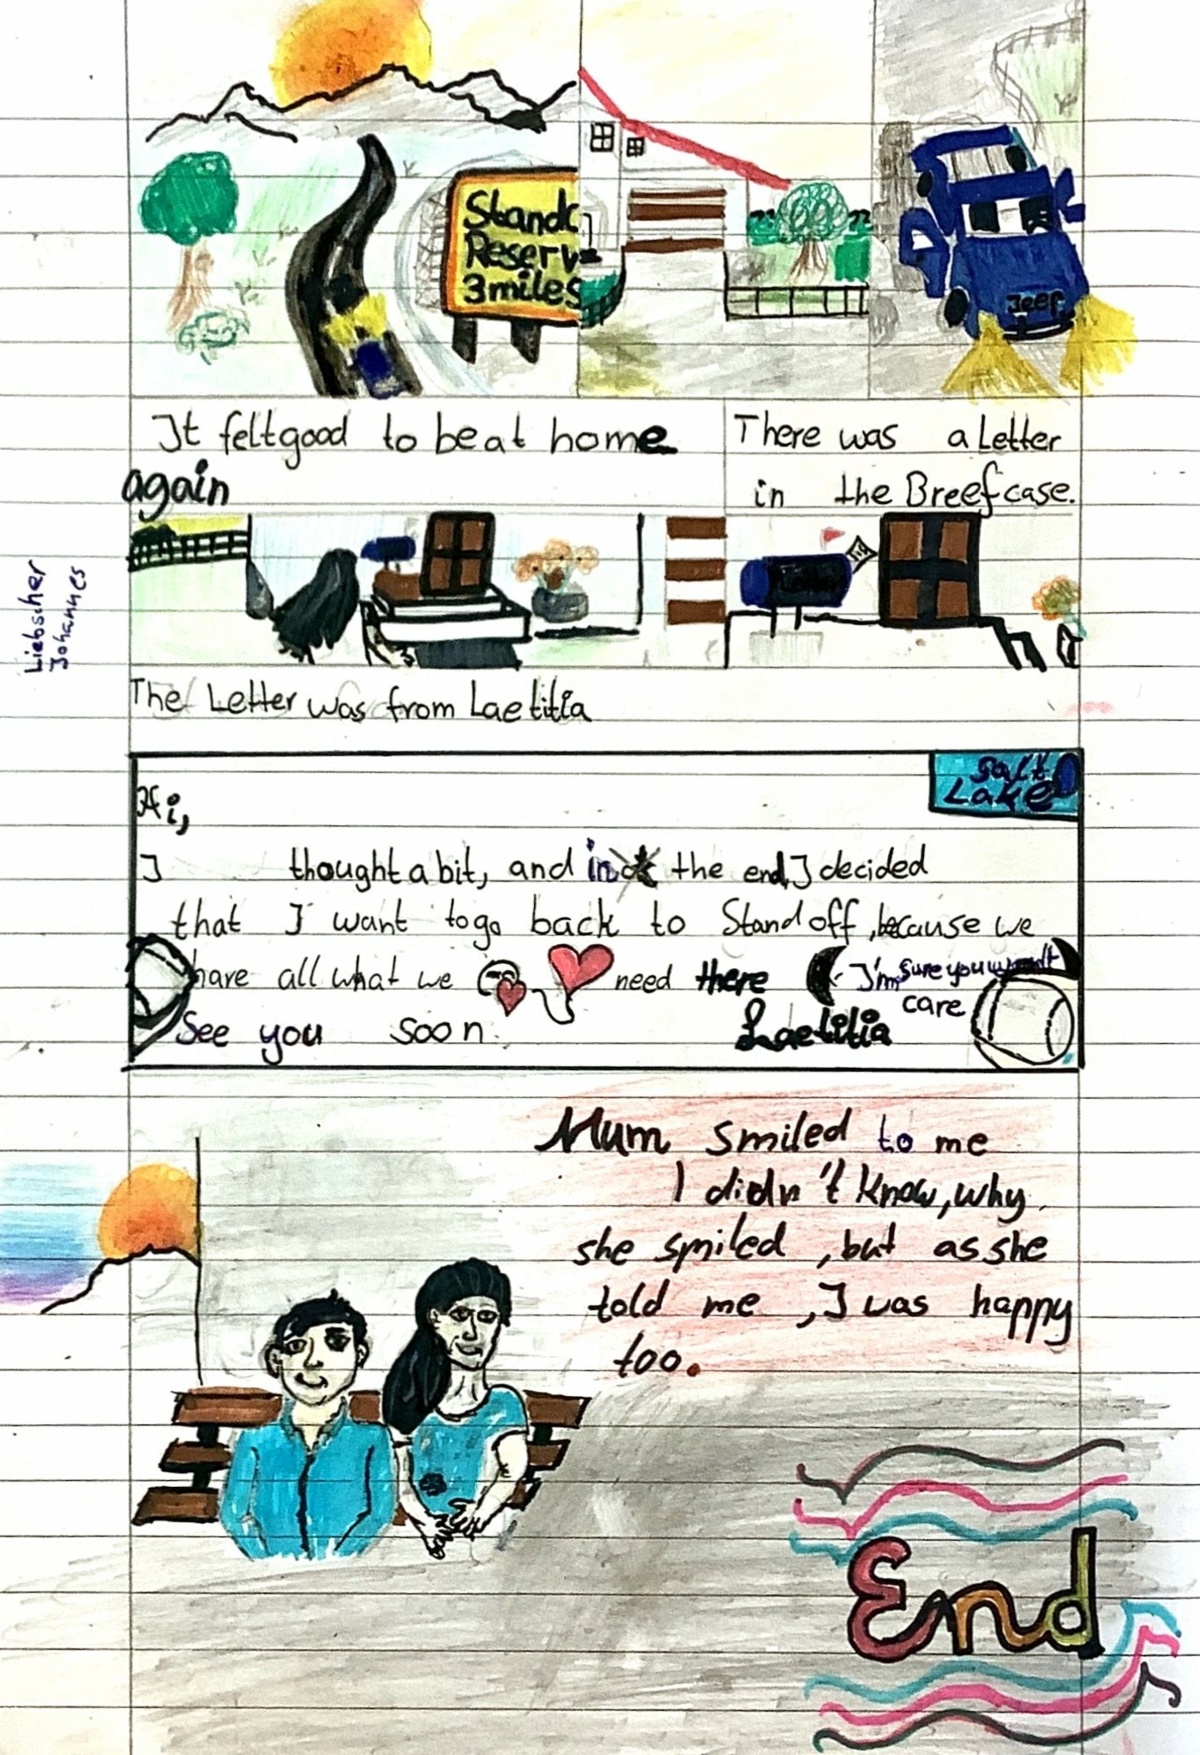 Stando
Reserv
3miles
Jeep
It felt good to be at home
again
There was a Letter
in the Breefcase.
Liebscher
Johannes
The Letter was from Laetitia
Salt
Lake
Hi,
I thought a bit, and in the end, I decided
that I want to go back to Standoff, because we
have all what we need there I'm sure you
care
See you soon. Laetitia
Mum smiled to me
I didn't know, why
she smiled, but as she
told me, I was happy
too.
End